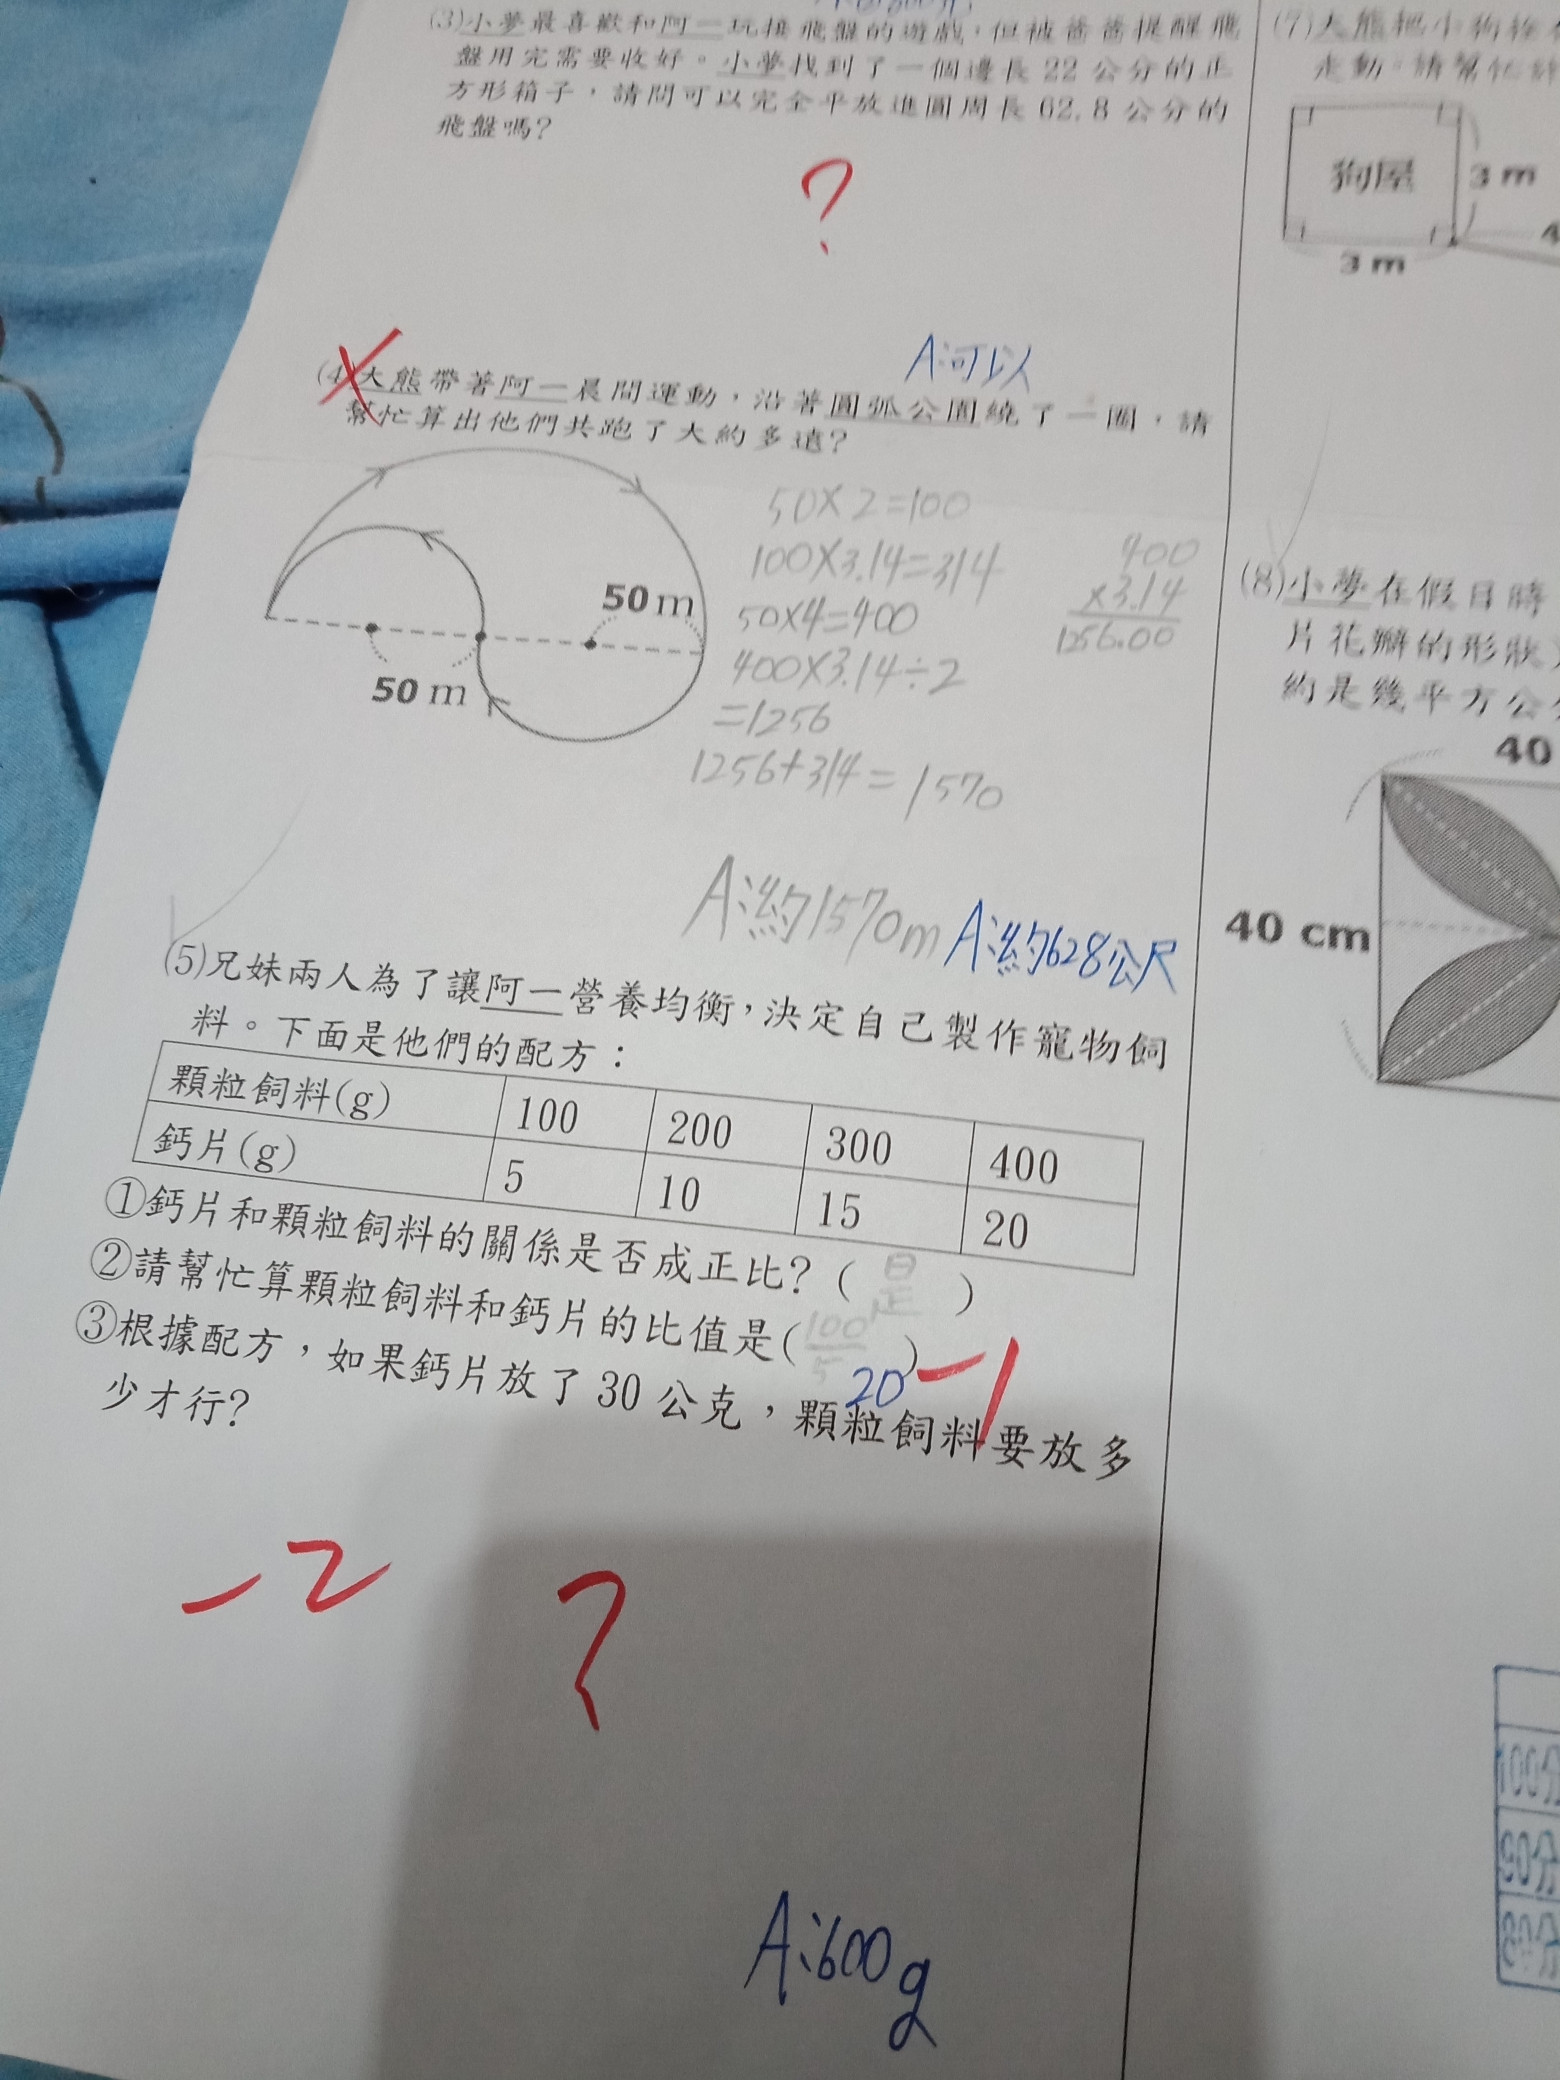 (3)小夢最喜歡和阿一玩接飛盤的遊戲，但被爸爸提醒飛
盤用完需要收好。小夢找到了一個邊長22公分的正
方形箱子，請問可以完全平放進圓周長62.8公分的
飛盤嗎？
?
A:可以
(4)大熊帶著阿一晨間運動，沿著圓弧公園繞了一圈，請
幫忙算出他們共跑了大約多遠？
50m
50m
50×2=100
100×3.14=314
50×4=400
400×3.14÷2
=1256
1256+314=1570
400
×3.14
1256.00
A:約1570m
A:約628公尺
(5)兄妹兩人為了讓阿一營養均衡，決定自己製作寵物飼
料。下面是他們的配方：
顆粒飼料(g) 100 200 300 400
鈣片(g) 5 10 15 20
①鈣片和顆粒飼料的關係是否成正比？(是)
②請幫忙算顆粒飼料和鈣片的比值是(100/5)
20
-1
③根據配方，如果鈣片放了30公克，顆粒飼料要放多
少才行？
-2
?
A:600g
(7)大熊把小狗拴
走動。請幫忙
狗屋
3m
3m
4
(8)小夢在假日時
片花瓣的形狀
約是幾平方公
40
40 cm
100分
90分
80分